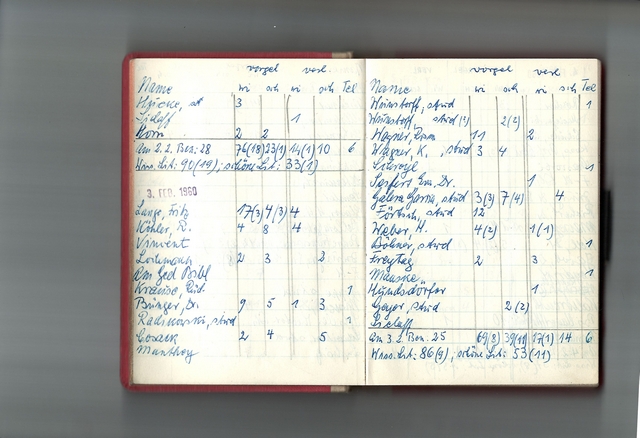 vorgel verl.
Name wi sch wi sch Tel
Hücke, st 3
Schaff 1
Horn 2 2
Am 2.2. Ben: 28 76(18) 23(1) 14(1) 10 6
Wiss. Lit: 90(19); schöne Lit: 33(1)
3. FEB. 1960
Lange, Fritz 17(3) 4(3) 4
Köhler, R. 4 8 4
Vinzent
Lochmann 2 3 2
Krause, Rud. 1
Bünger, Dr. 9 5 1 3
Radzikowski, stud 1
Cossack 2 4 5
Manthey
vorgel verl.
Name wi sch wi sch Tel
Wünstorff, stud 1
Wünstorff, stud (2) 2(2)
Wagner, 11 2
Wagner K., stud 3 4
1
Seifert Dr. 1
Garcia, stud 3(3) 7(4) 4
Förtsch, stud 12
Weber, H. 4(2) 1(1)
Döhner, stud 1
Freytag 2 3
Maaske 1
Hundsdörfer 1
Geyer, stud 2(2)
Schaff
Am 3.2. Ben. 25 69(8) 39(11) 17(1) 14 6
Wiss. Lit: 86(9), schöne Lit: 53(11)